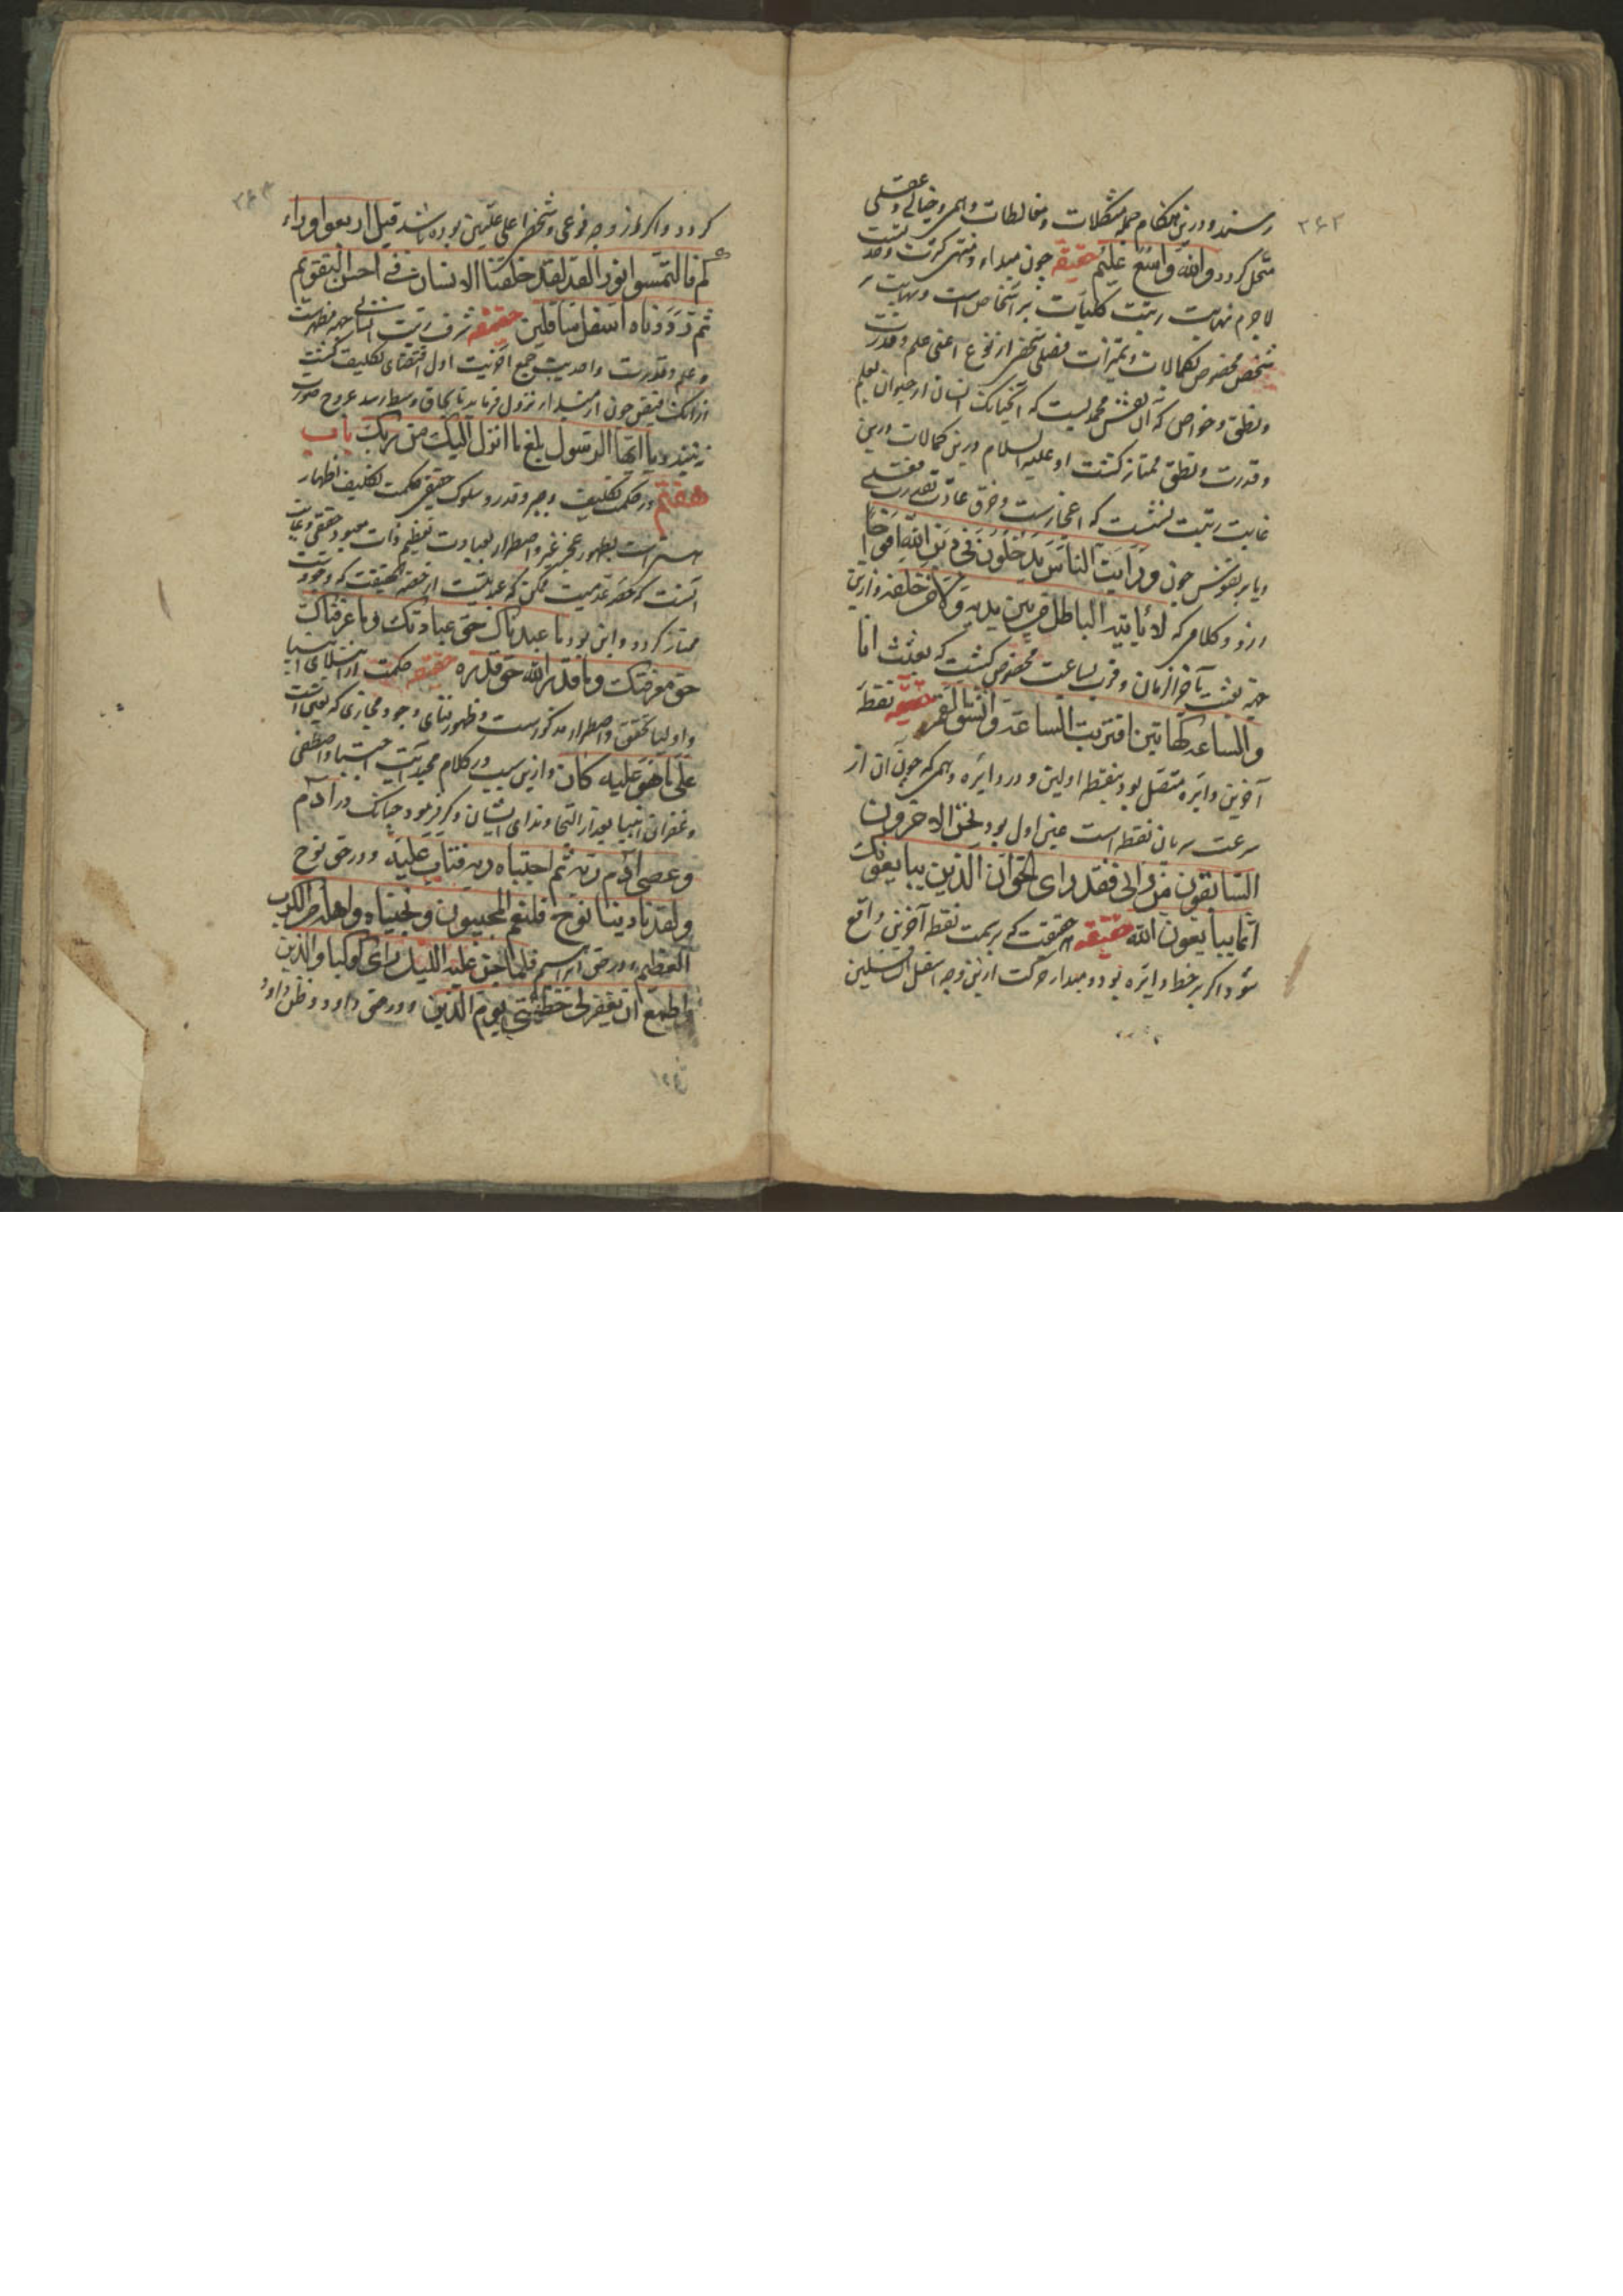 ۲۶۳
رسند و درین هنکام جمله مشکلات و مغالطات وهمی و خیالی و عقلی
منحل کردد والله واسع علیم حقیقه چون مبداء و منتهی کثرت وحدتست
لاجرم نهایت رتبت کلیات بر اشخاص است و نهایت
شخص مخصوص بکمالات و تمیزات فصلی شخص از نوع اعنی علم و قدرت
ونطق و خواص که آن نفس محمدیست که انچنانک انسان از حیوان بعلم
و قدرت و نطق ممتاز کشت او علیه السلام درین کمالات درین
غایت رتبت نشست که اعجازست و خرق عادت بقدرت فعلی
ویا بر نفوس چون ورایت الناس یدخلون فی دین الله افواجا
ارزد و کلامی که لا یاتیه الباطل من بین یدیه ولا من خلفه وازین
جهة بعثت بآخر الزمان و قرب ساعت مخصوص کشت که بعثت انا
والساعة کهاتین اقتربت الساعة وانشق القمر حقیقه نقطه
آخرین دایره متصل بود بنقطه اولین و در دایره وهمی که چون آن از
سرعت سریان نقطه است عین اول بود نحن الاخرون
السابقون من رانی فقد رای الحق ان الذین یبایعونک
انما یبایعون الله حقیقه حقیقت که بر سمت نقطه آخرین واقع
شود اکر بر خط دایره بود و مبدا حرکت ازین وجه اسفل السافلین
۲۶۴
کردد و اکر از وجه نوعی و شخص اعلی علیین بوده باشد قیل ارجعوا وراء
کم فالتمسوا نورا لقد لقد خلقنا الانسان فی احسن التقویم
ثم رددناه اسفل سافلین حقیقه شرف رتبت انسانی جهة مظهریت
و علم و قدرت واحدیت جمع آخریت اول اقتضای تکلیف کشت
ازانک فیض چون از مبدا نزول فرماید تا بحاق وسط رسد عروج صورت
نبندد یا ایها الرسول بلغ ما انزل الیک من ربک باب
هفتم در حکمت تکلیف و جبر و قدر و سلوک حقیقی حکمت تکلیف اظهار
سرّ است بظهور عجز غیر و اضطرار بعبادت تعظیم ذات معبود حقیقی و غایت
آنست که حصه عدمیت ممکن که عبدیت از حصه حقیقت که وجودست
ممتاز کردد و این بود ما عبدناک حق عبادتک وما عرفناک
حق معرفتک وما قدر الله حق قدره حقیقه حکمت از ابتلای انبیا
و اولیا تحقق و اضطرار مذکورست و ظهور فنای وجود مجازی که تعین است
علی ما هو علیه کان وازین سبب در کلام مجید آیت اجتبا و اصطفی
و غفران انبیا بعد از التجا و ندای ایشان ذکر فرمود چنانک در آدم
وعصی آدم ربه ثم اجتباه ربه فتاب علیه و در حق نوح
ولقد نادینا نوح فلنعم المجیبون ونجیناه واهله من الکرب
العظیم و در حق ابراهیم فلما جن علیه اللیل رای کوکبا والذین
واطمع ان یغفر لی خطیئتی یوم الدین و در حق داود وظن داود